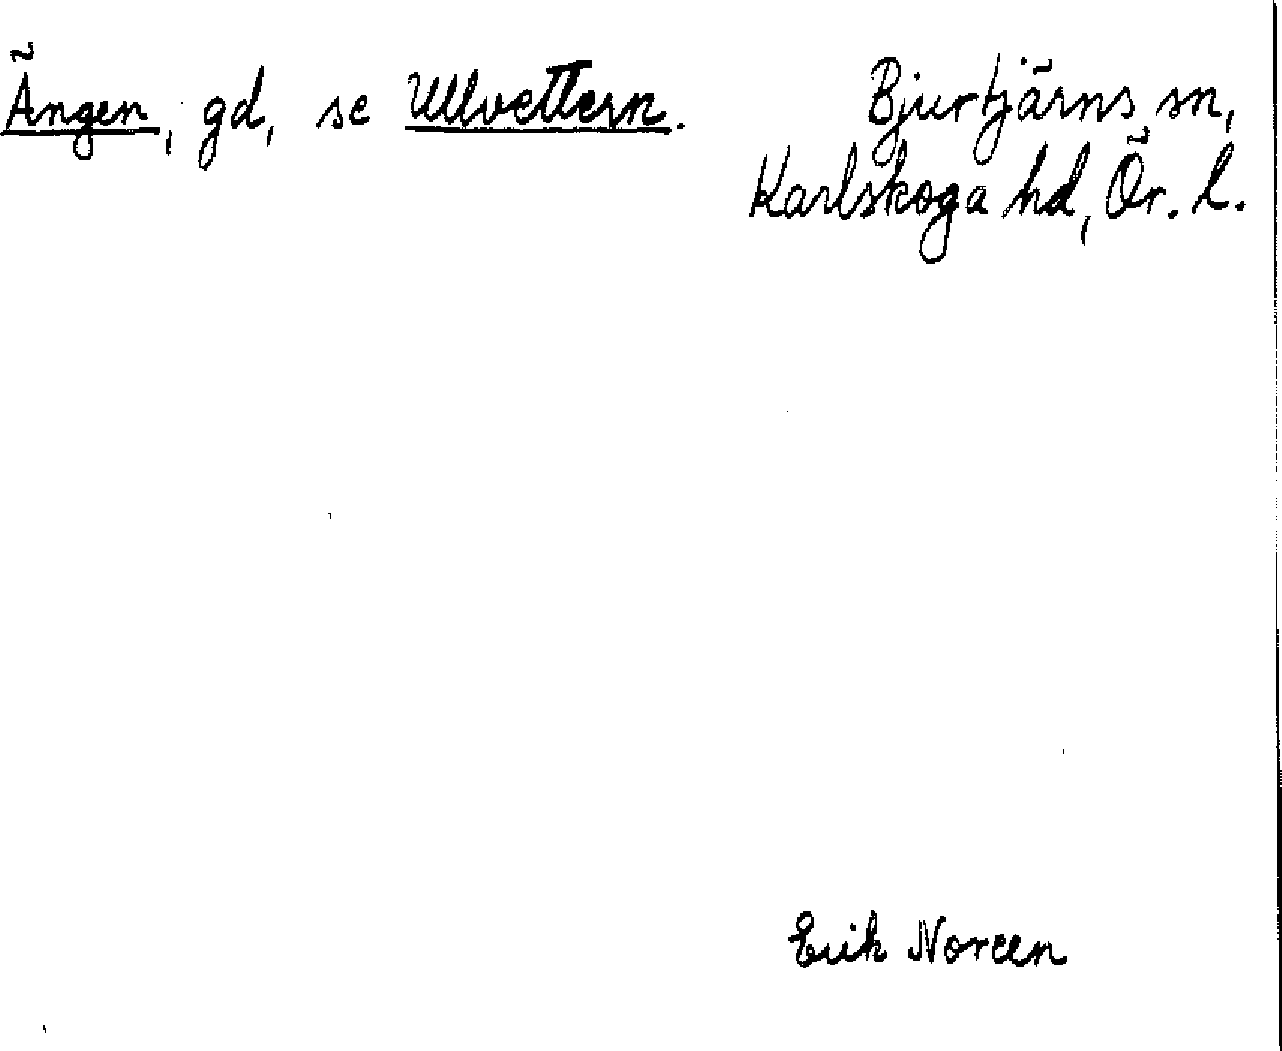 Ängen, gd, se Ullvettern.
Bjurtjärns sn,
Karlskoga hd, Ör. l.
Erik Noreen